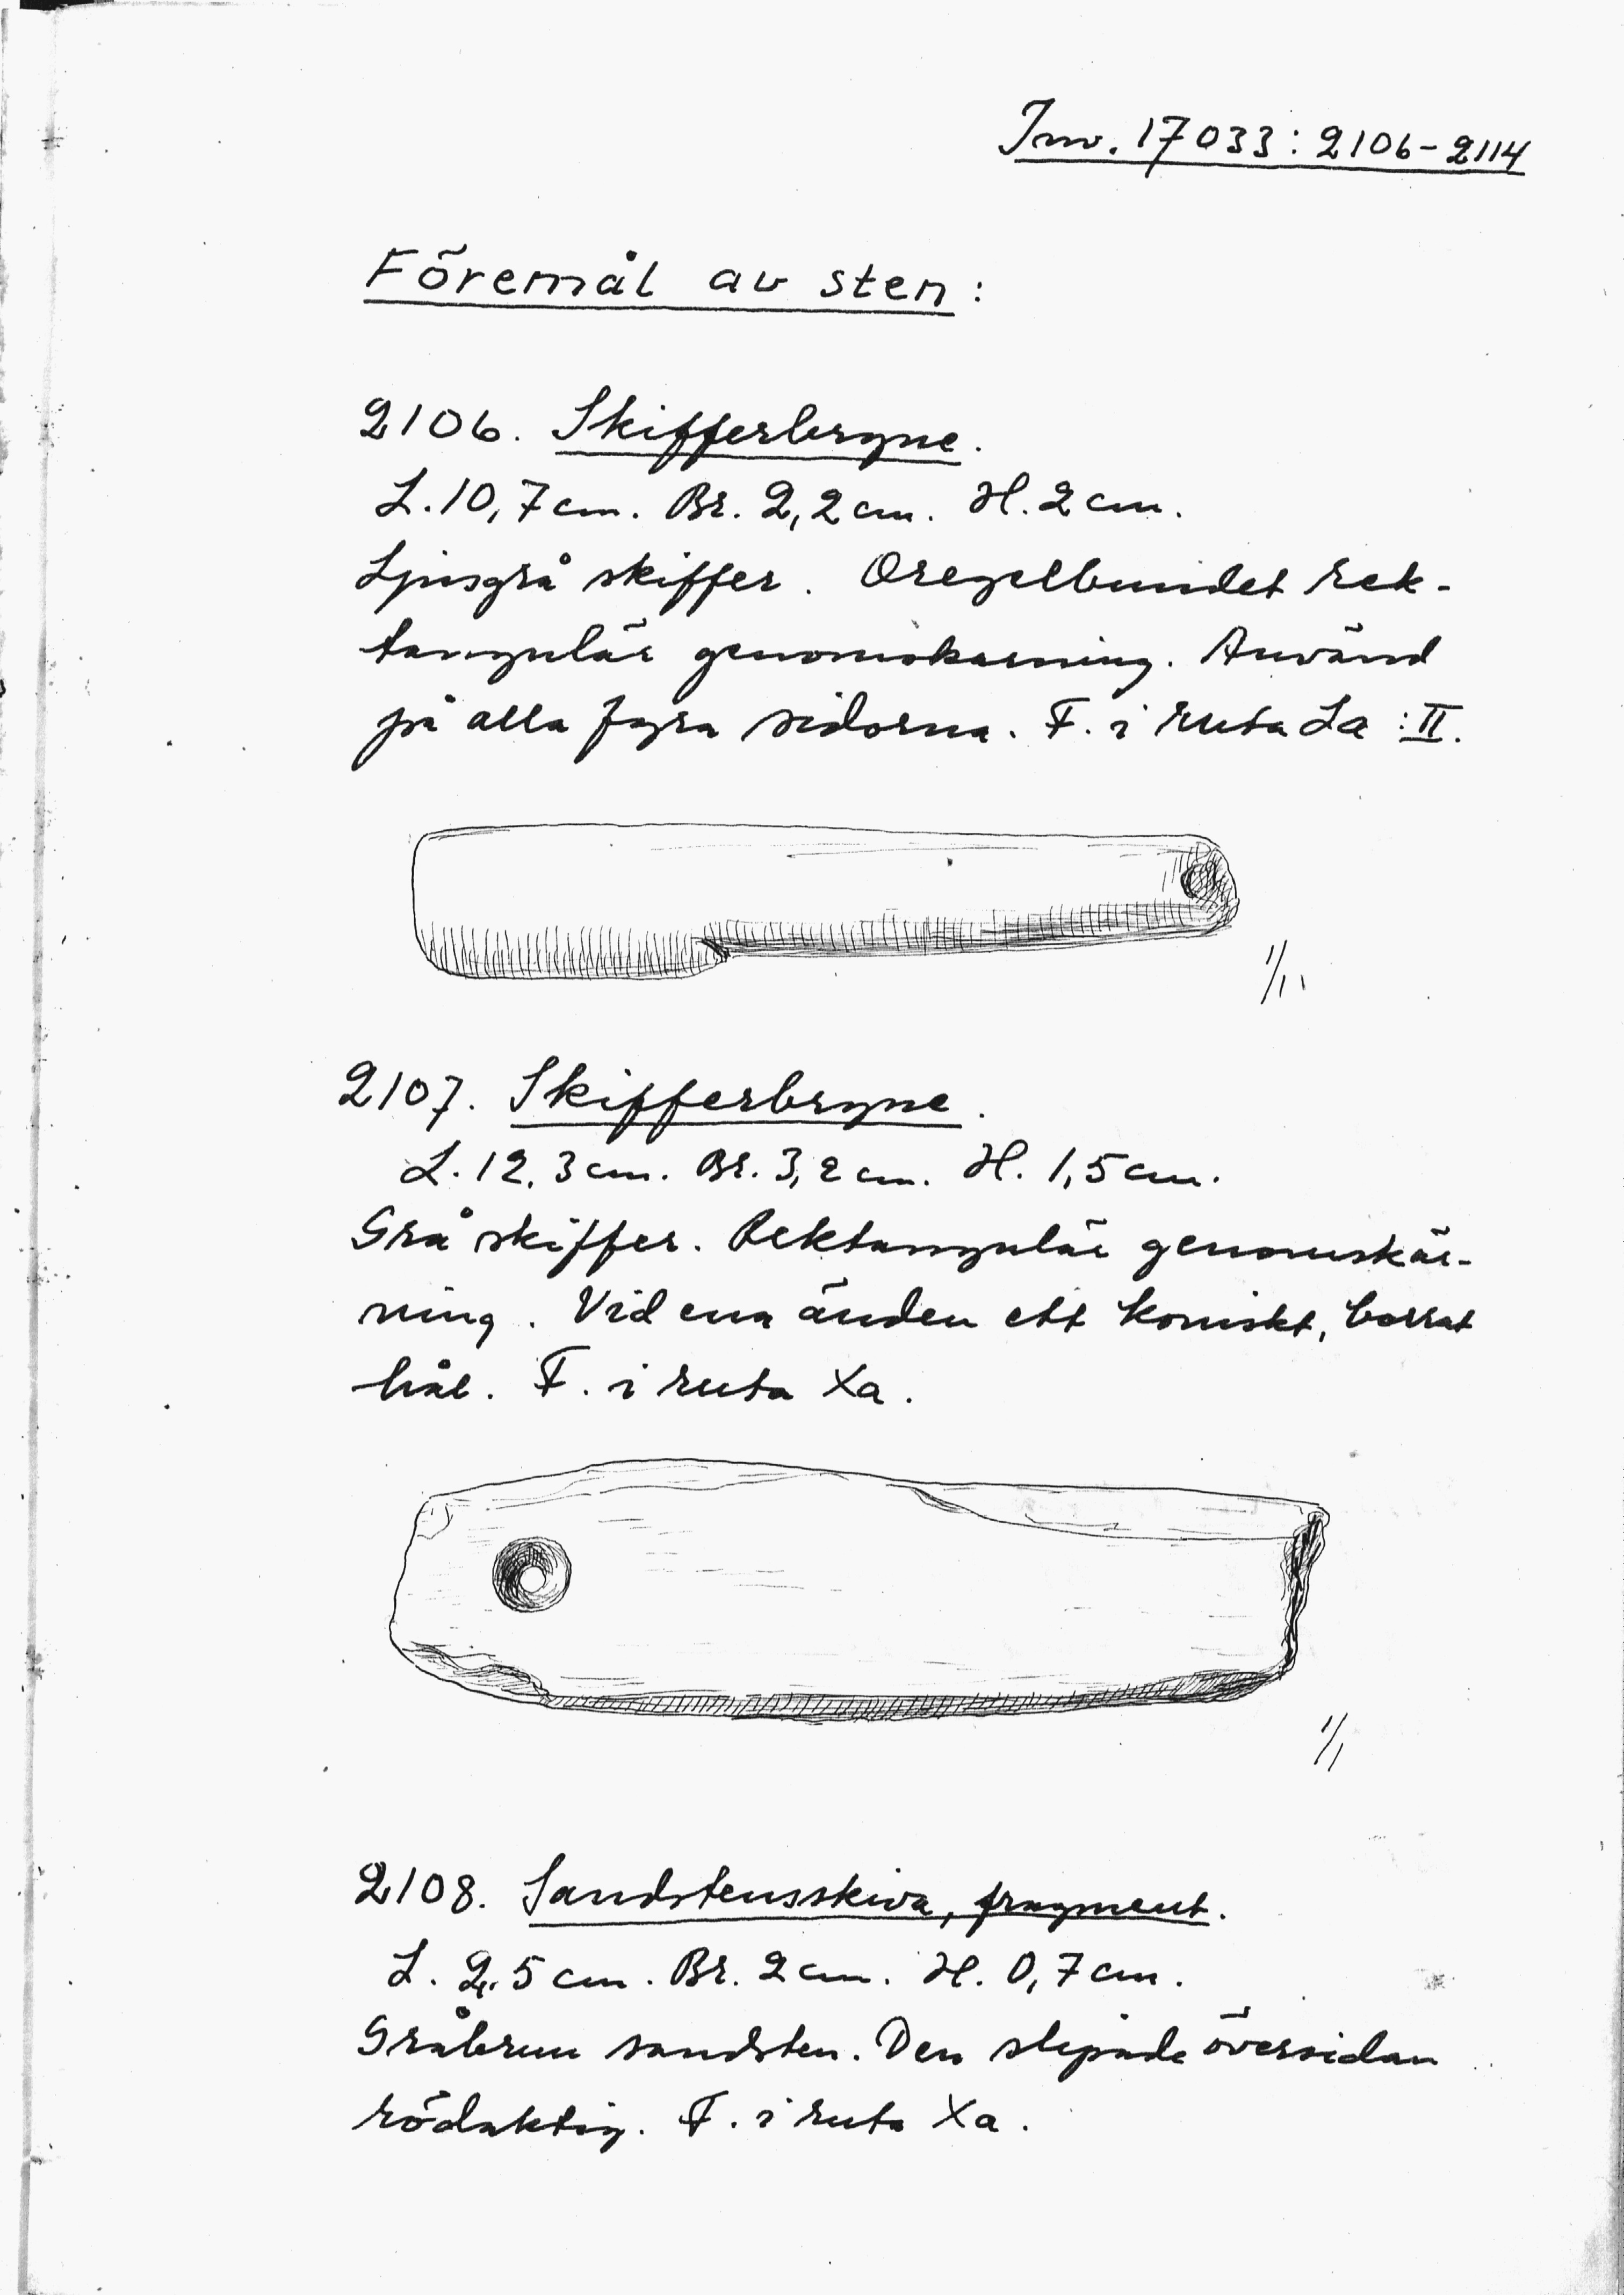 Inv. 17033:2106-2114
Föremål av sten:
2106. Skifferbryne.
L. 10,7 cm. Br. 2,2 cm. H. 2 cm.
Ljusgrå skiffer. Oregelbundet rek-
tangulär genomskärning. Använd
på alla fyra sidorna. F. i ruta La:II.
1/1
2107. Skifferbryne.
L. 12,3 cm. Br. 3,2 cm. H. 1,5 cm.
Grå skiffer. Rektangulär genomskär-
ning. Vid ena änden ett koniskt, borrat
hål. F. i ruta Xa.
1/1
2108. Sandstensskiva, fragment.
L. 2,5 cm. Br. 2 cm. H. 0,7 cm.
Gråbrun sandsten. Den slipade översidan
rödaktig. F. i ruta Xa.